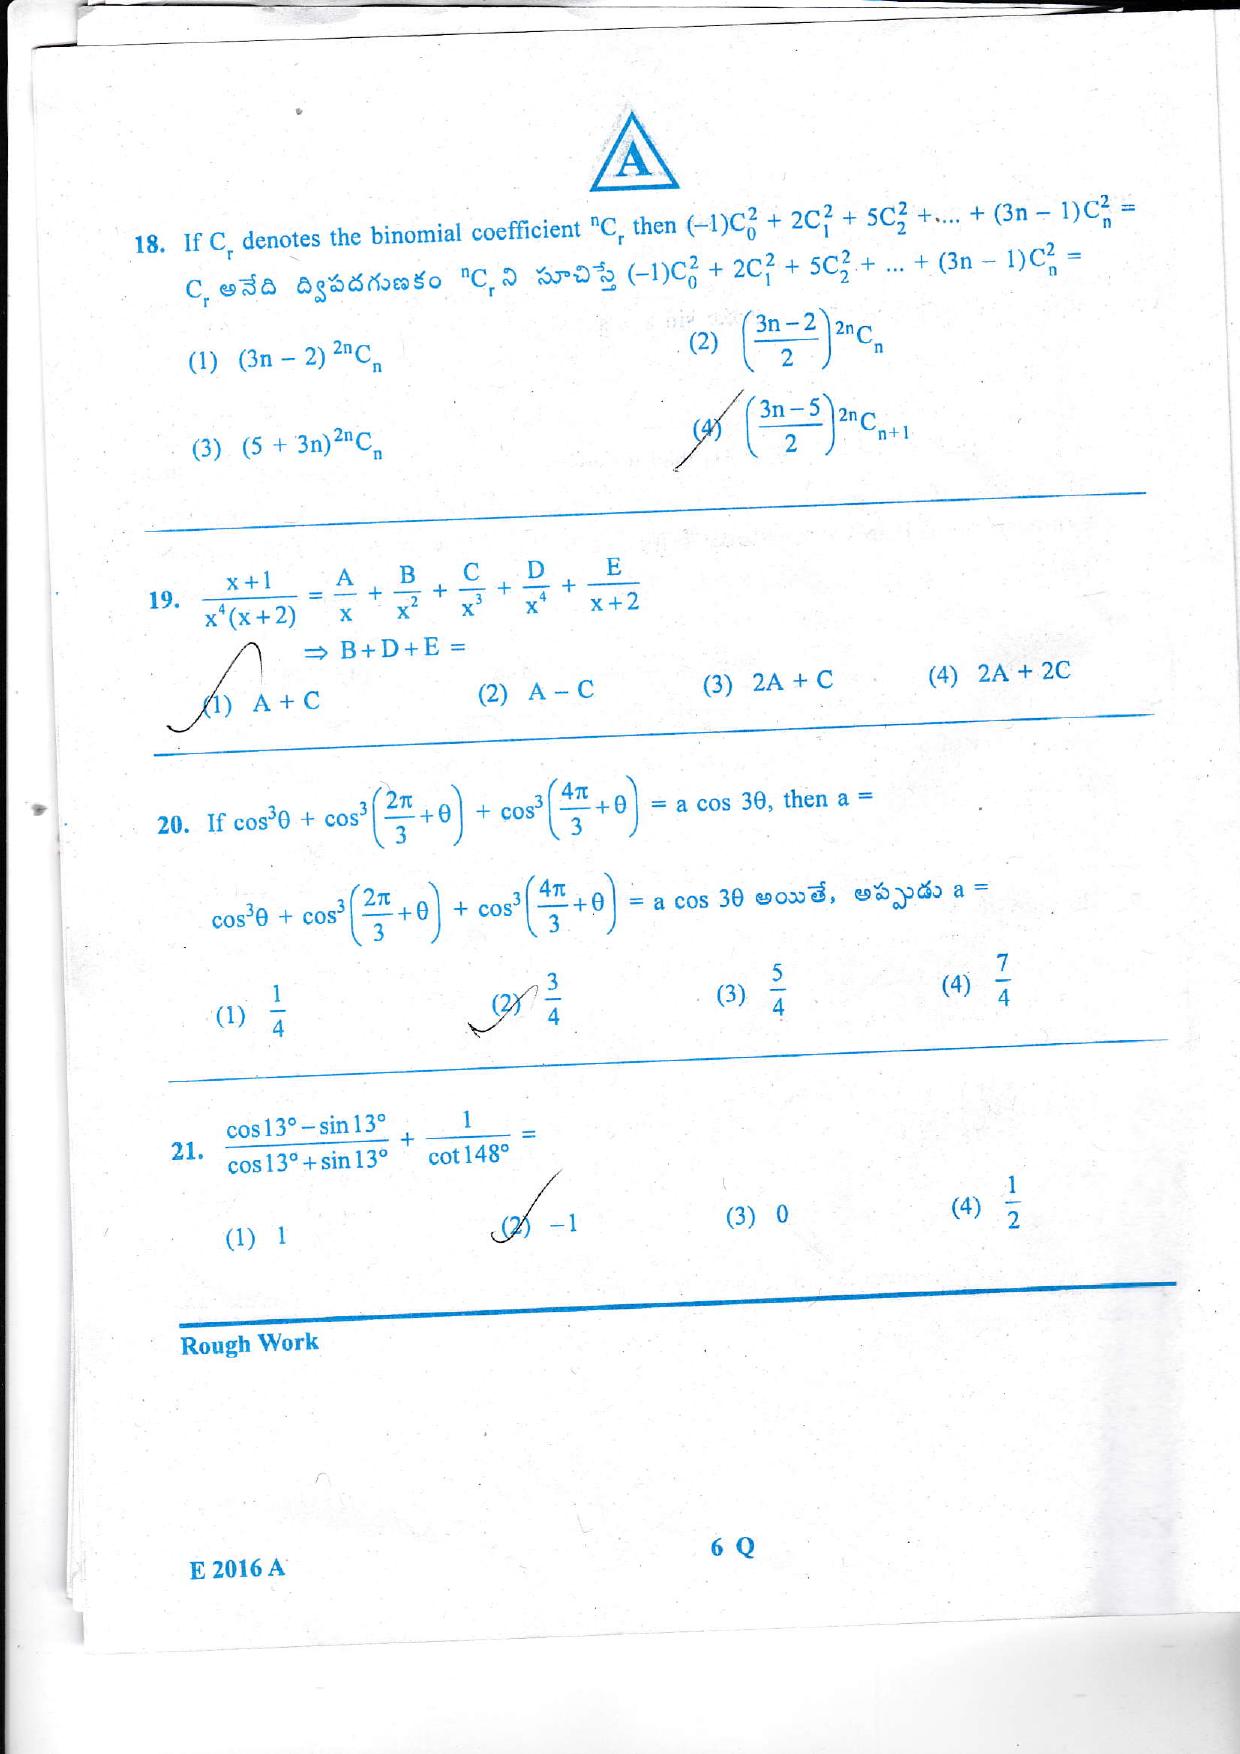 A
18. If C_r denotes the binomial coefficient ⁿC_r then (–1)C₀² + 2C₁² + 5C₂² +.... + (3n – 1)C_n² =
C_r అనేది ద్విపదగుణకం ⁿC_r ని సూచిస్తే (–1)C₀² + 2C₁² + 5C₂² + ... + (3n – 1)C_n² =
(1) (3n – 2) ²ⁿC_n (2) ((3n – 2)/2) ²ⁿC_n
(3) (5 + 3n) ²ⁿC_n (4) ((3n – 5)/2) ²ⁿC_{n+1}
19. (x+1)/(x⁴(x+2)) = A/x + B/x² + C/x³ + D/x⁴ + E/(x+2)
⇒ B+D+E =
(1) A + C (2) A – C (3) 2A + C (4) 2A + 2C
20. If cos³θ + cos³(2π/3 + θ) + cos³(4π/3 + θ) = a cos 3θ, then a =
cos³θ + cos³(2π/3 + θ) + cos³(4π/3 + θ) = a cos 3θ అయితే, అప్పుడు a =
(1) 1/4 (2) 3/4 (3) 5/4 (4) 7/4
21. (cos13° – sin13°)/(cos13° + sin13°) + 1/cot148° =
(1) 1 (2) –1 (3) 0 (4) 1/2
Rough Work
E 2016 A 6 Q